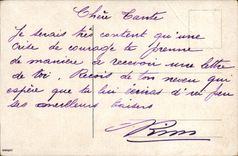 Chère Tante
Je serais très content qu'une
crise de courage te prenne
de manière à recevoir une lettre
de toi. Reçois de ton neveu qui
espère que tu lui écriras d'ici peu
ses meilleurs baisers